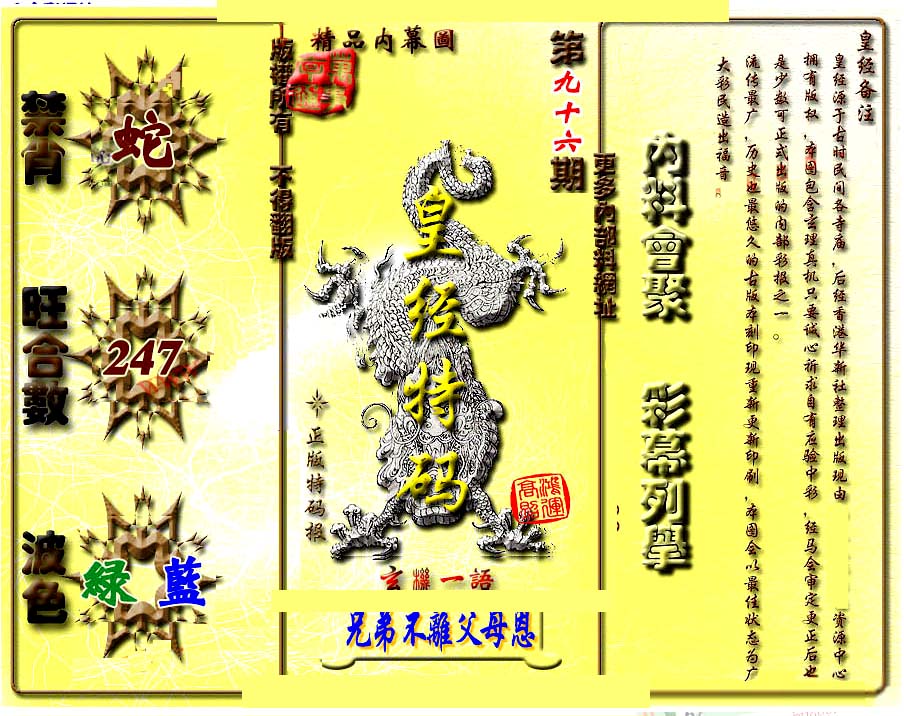 皇经备注
皇经源于古时民间各寺庙，后经香港华新社整理出版现由
资源中心
拥有版权，本图包含玄理真机只要诚心祈求自有应验中彩，经马会审定更正后也
是少数可正式出版的内部彩报之一。
流传最广，历史也最悠久的古版本刻印现重新更新印刷，本图会以最佳状态为广
大彩民造出福音
内料會聚
彩幕列舉
更多內部料網址
第九十六期
精品内幕圖
版權所有
不得翻版
皇经特码
正版特码报
鴻運
高照
玄機一語
兄弟不離父母恩
禁肖
蛇
旺合數
247
波色
綠
藍